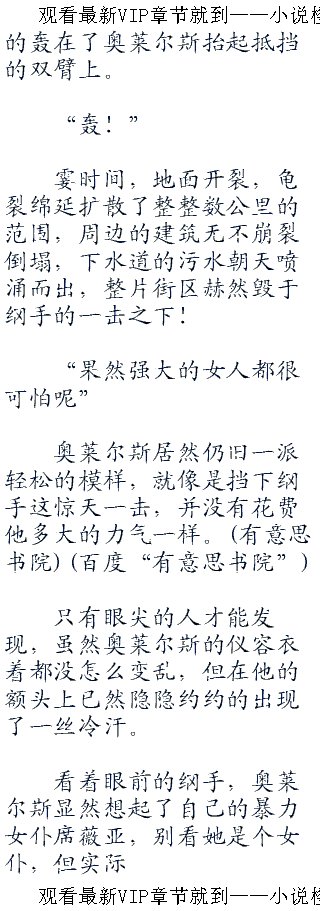 观看最新VIP章节就到——小说
的轰在了奥莱尔斯抬起抵挡
的双臂上。
“轰！”
霎时间，地面开裂，龟
裂绵延扩散了整整数公里的
范围，周边的建筑无不崩裂
倒塌，下水道的污水朝天喷
涌而出，整片街区赫然毁于
纲手的一击之下！
“果然强大的女人都很
可怕呢”
奥莱尔斯居然仍旧一派
轻松的模样，就像是挡下纲
手这惊天一击，并没有花费
他多大的力气一样。(有意思
书院)(百度“有意思书院”)
只有眼尖的人才能发
现，虽然奥莱尔斯的仪容衣
着都没怎么变乱，但在他的
额头上已然隐隐约约的出现
了一丝冷汗。
看着眼前的纲手，奥莱
尔斯显然想起了自己的暴力
女仆席薇亚，别看她是个女
仆，但实际
观看最新VIP章节就到——小说